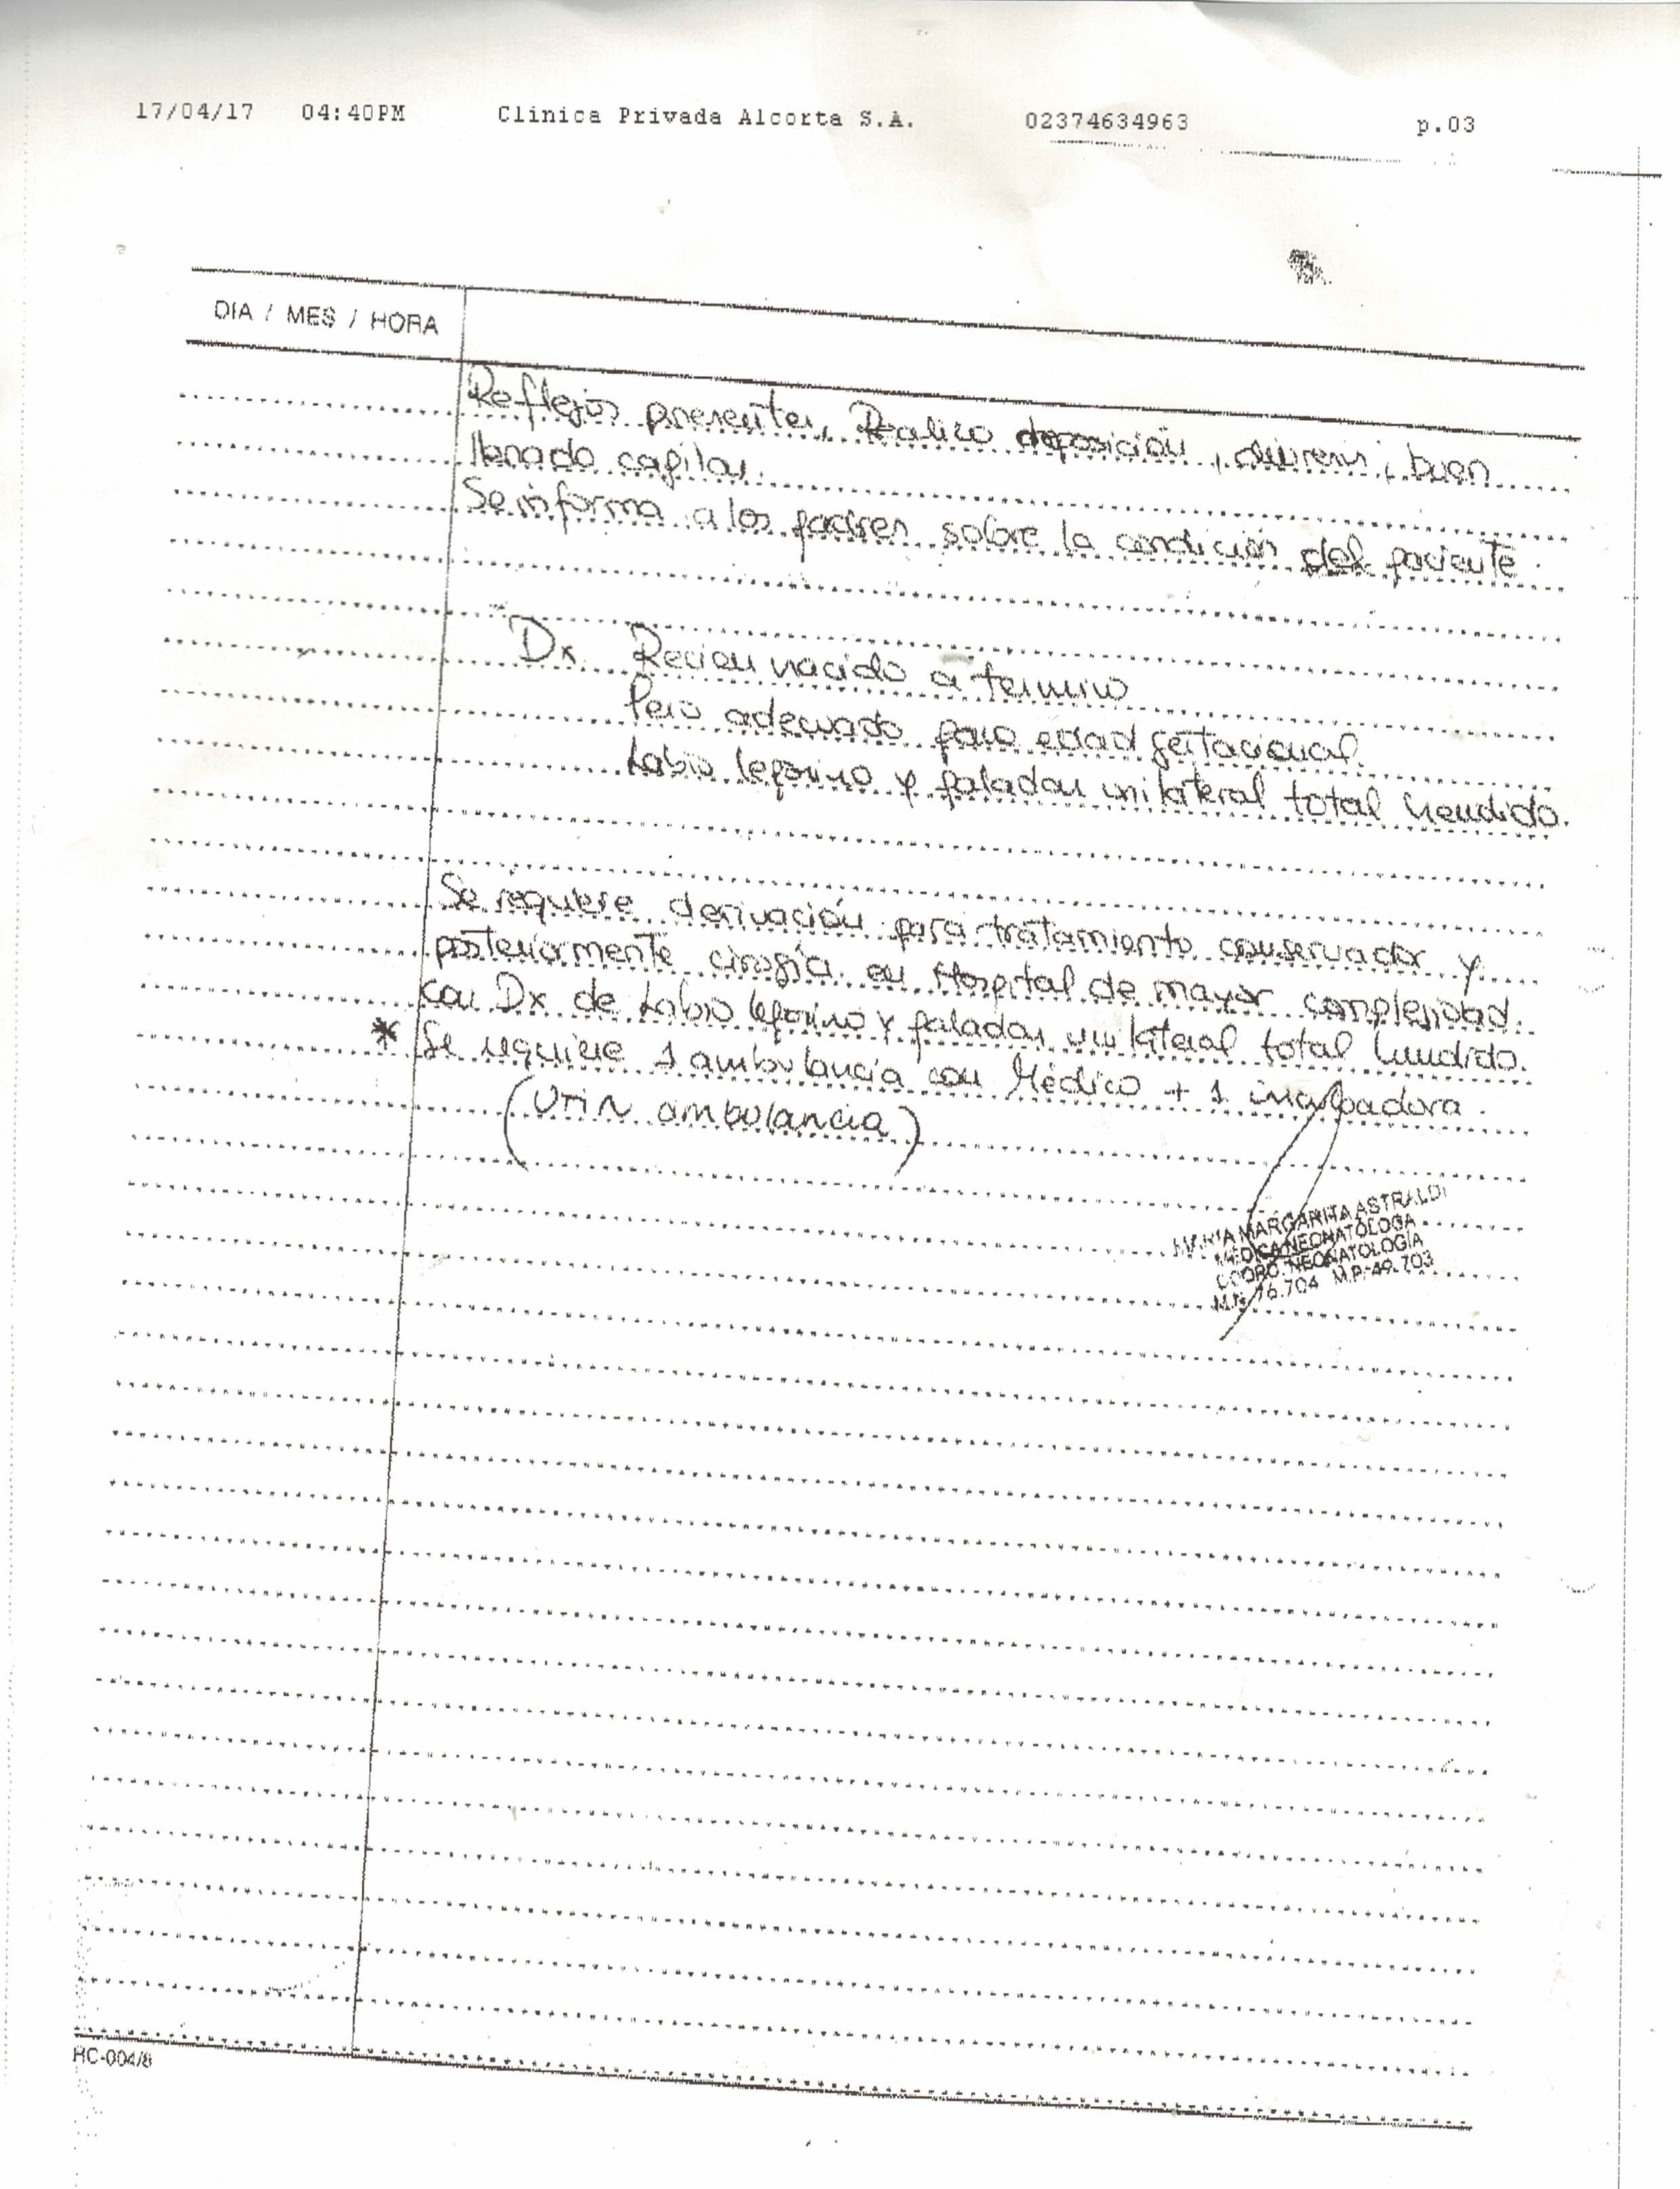 17/04/17 04:40PM Clinica Privada Alcorta S.A. 02374634963 p.03
DIA / MES / HORA
Reflejos presentes, Realizo deposición, diuresis, buen
llenado capilar.
Se informa a los padres sobre la condición del paciente.
Dx Recien nacido a termino
Peso adecuado para edad gestacional.
Labio leporino y paladar unilateral total hendido.
Se requiere derivación para tratamiento conservador y
posteriormente cirugía en Hospital de mayor complejidad
con Dx de Labio leporino y paladar unilateral total hendido.
* Se requiere 1 ambulancia con Médico + 1 incubadora.
(UTIN ambulancia)
MARIA MARGARITA ASTRALDI
MEDICA NEONATOLOGA
COORD. NEONATOLOGÍA
M.N. 76.704 M.P. 49.703
HC-004/8